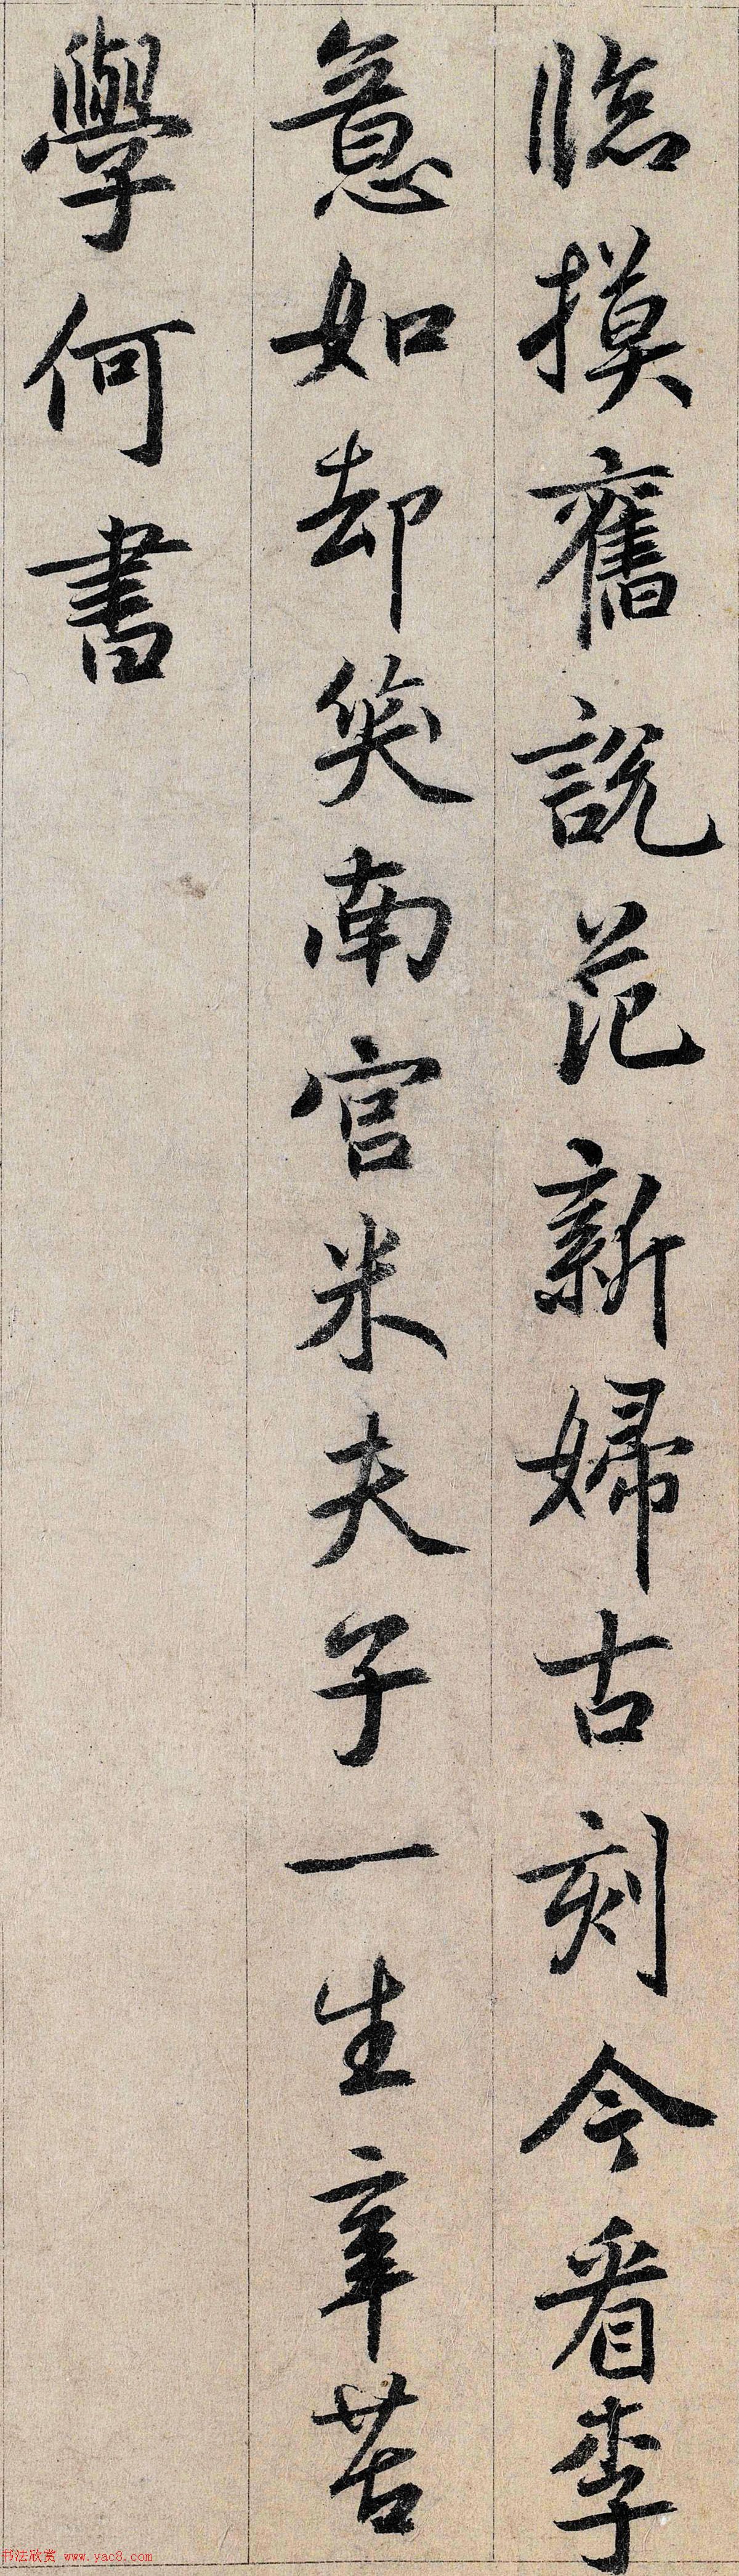 臨摸舊說范新婦古刻今看李
意如却笑南宮米夫子一生辛苦
學何書
书法欣赏 www.yac8.com